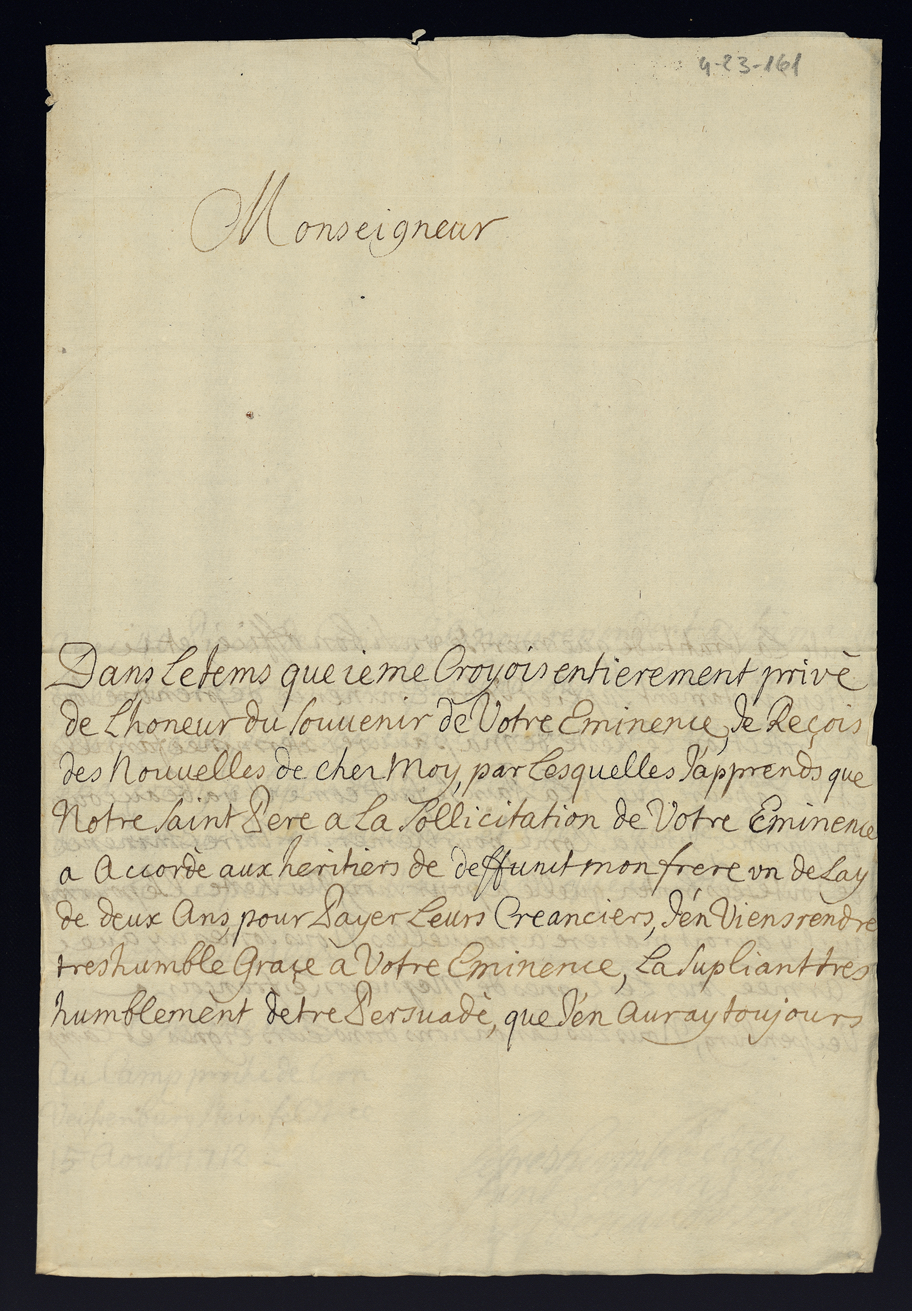 4-23-161
Monseigneur
Dans Le tems que ie me Croyois entierement privè
de L'honeur du souvenir de Votre Eminence, Je Reçois
des Nouvelles de cher Moy, par Lesquelles J'apprends que
Notre saint Pere a La sollicitation de Votre Eminence
a Accordè aux heritiers de deffunct mon frere vn deLay
de deux Ans, pour Payer Leurs Creanciers, J'en Viens rendre
tres humble Graçe a Votre Eminence, La supliant tres
humblement detre Persuadè, que J'en Auray toujours
15 Aoust 1712